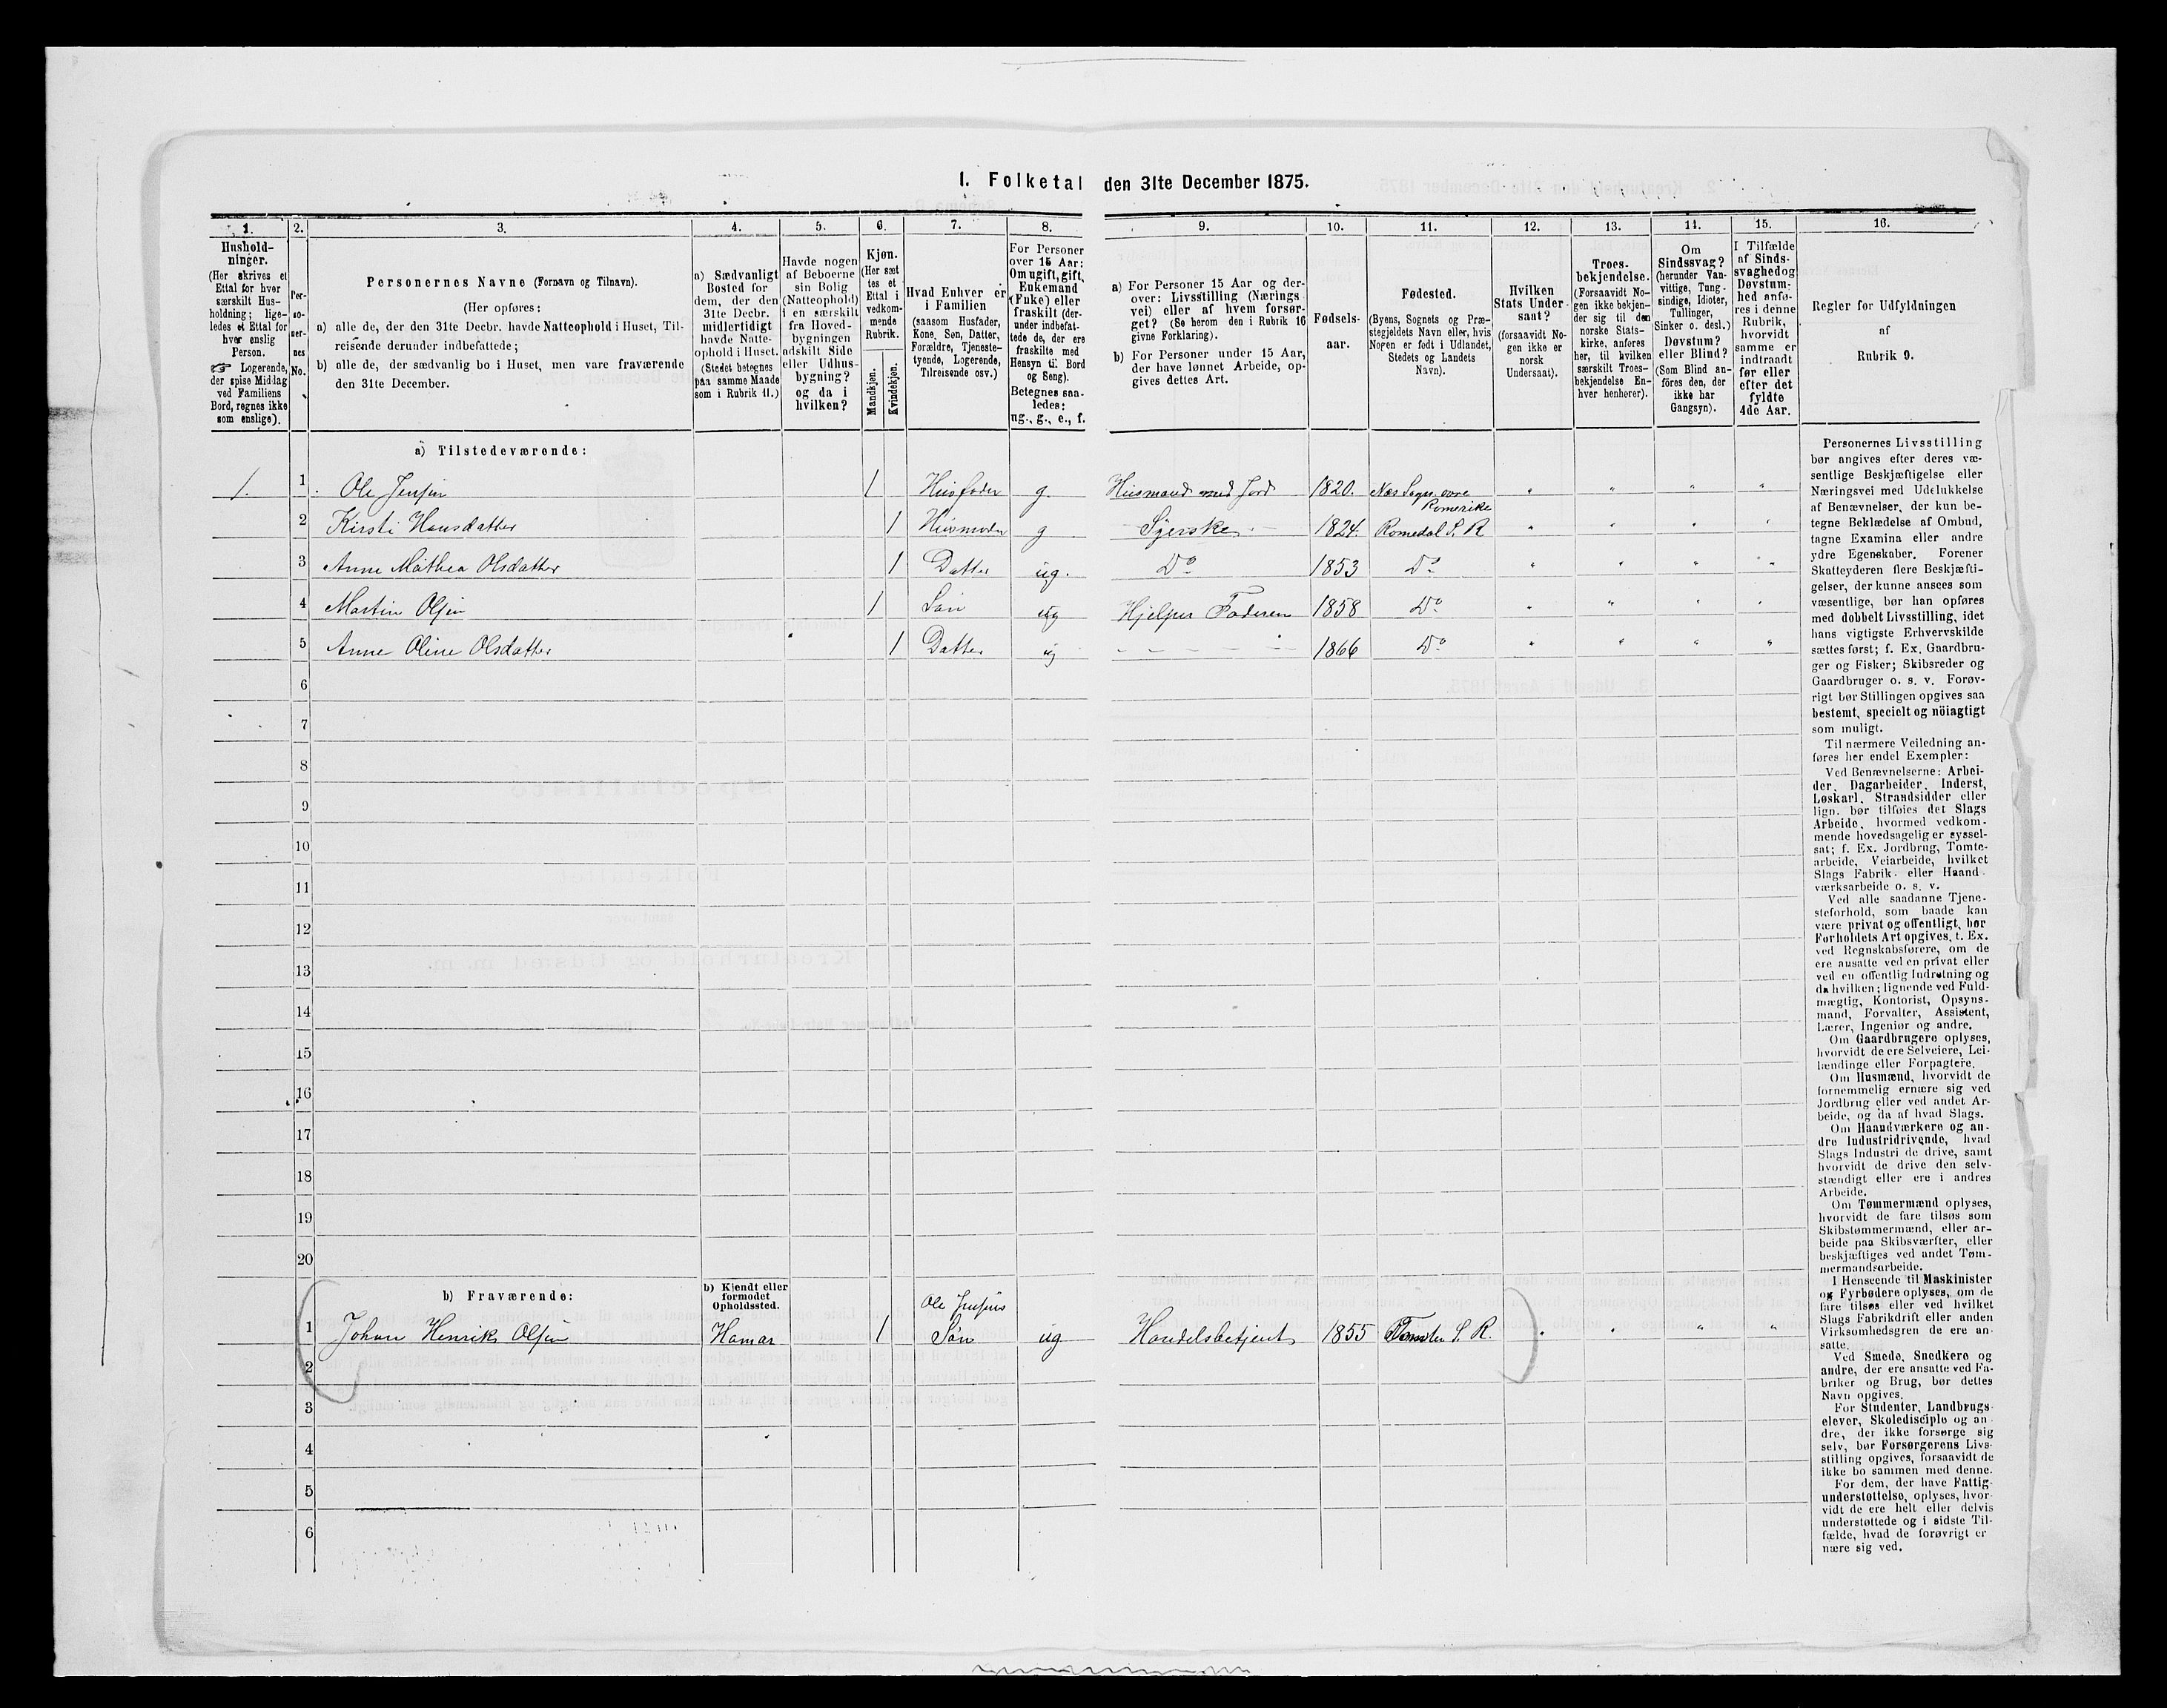 I. Folketal den 31te December 1875.
1. 2. 3. 4. 5. 6. 7. 8. 9. 10. 11. 12. 13. 14. 15. 16.
Hushold-
ninger.
(Her skrives et
Ettal for hver
særskilt Hus-
holdning; lige-
ledes et Ettal for
hver enslig
Person.
☞ Logerende,
der spise Middag
ved Familiens
Bord, regnes ikke
som enslige).
Per-
so-
ner-
nes
No.
Personernes Navne (Fornavn og Tilnavn).
(Her opføres:
a) alle de, der den 31te Decbr. havde Natteophold i Huset, Til-
reisende derunder indbefattede;
b) alle de, der sædvanlig bo i Huset, men vare fraværende
den 31te December.
a) Sædvanligt
Bosted for
dem, der den
31te Decbr.
midlertidigt
havde Natte-
ophold i Huset.
(Stedet betegnes
paa samme Maade
som i Rubrik 11.)
Havde nogen
af Beboerne
sin Bolig
(Natteophold)
i en særskilt
fra Hoved-
bygningen
adskilt Side
eller Udhus-
bygning?
og da i
hvilken?
Kjøn.
(Her sæt
tes et
Ettal i
vedkom-
mende
Rubrik.
Mandkjøn.
Kvindekjøn.
Hvad Enhver er
i Familien
(saasom Husfader,
Kone, Søn, Datter,
Forældre, Tjeneste-
tyende, Logerende,
Tilreisende osv.)
For Personer
over 15 Aar:
Om ugift, gift,
Enkemand
(Enke) eller
fraskilt (der-
under indbefat-
tede de, der ere
fraskilte med
Hensyn til Bord
og Seng).
Betegnes saa-
ledes:
ug., g., e., f.
a) For Personer 15 Aar og der-
over: Livsstilling (Nærings
vei) eller af hvem forsør-
get? (Se herom den i Rubrik 16
givne Forklaring).
b) For Personer under 15 Aar,
der have lønnet Arbeide, op-
gives dettes Art.
Fødsels-
aar.
Fødested.
(Byens, Sognets og Præ-
stegjeldets Navn eller, hvis
Nogen er født i Udlandet,
Stedets og Landets
Navn).
Hvilken
Stats Under-
saat?
(forsaavidt No-
gen ikke er
norsk
Undersaat).
Troes-
bekjendelse.
(Forsaavidt No-
gen ikke bekjen-
der sig til den
norske Stats-
kirke, anføres
her, til hvilken
særskilt Troes-
bekjendelse En-
hver henhører).
Om
Sindssvag?
(herunder Van-
vittige, Tung-
sindige, Idioter,
Tullinger,
Sinker o. desl.)
Døvstum?
eller Blind?
(Som Blind an-
føres den, der
ikke har
Gangsyn).
I Tilfælde
af Sinds-
svaghed og
Døvstum-
hed anfø-
res i denne
Rubrik,
hvorvidt
samme er
indtraadt
før eller
efter det
fyldte
4de Aar.
Regler for Udfyldningen
af
Rubrik 9.
a) Tilstedeværende:
1. 1 Ole Jensen 1 Husfader g. Husmand med Jord 1820. Næs Sogn øvre Romerike
2 Kirsti Hansdatter 1 Husmoder g Syerske 1824. Romedal S. R
3 Anne Mathea Olsdatter 1 Datter ug. Do 1853 Do
4 Martin Olsen 1 Søn ug Hjelper Faderen 1858 Do
5 Anne Oline Olsdatter 1 Datter ug 1866 Do
6
7
8
9
10
11
12
13
14
15
16
17
18
19
20
b) Fraværende:
b) Kjendt eller
formodet
Opholdssted.
1 Johan Henrik Olsen Hamar 1 Ole Jensens Søn ug Handelsbetjent 1855 S. R.
2
3
4
5
6
Personernes Livsstilling
bør angives efter deres væ-
sentlige Beskjæftigelse eller
Næringsvei med Udelukkelse
af Benævnelser, der kun be-
tegne Beklædelse af Ombud,
tagne Examina eller andre
ydre Egenskaber. Forener
Skatteyderen flere Beskjæfti-
gelser, der kunne ansees som
væsentlige, bør han opføres
med dobbelt Livsstilling, idet
hans vigtigste Erhvervskilde
sættes først; f. Ex. Gaardbru-
ger og Fisker; Skibsreder og
Gaardbruger o. s. v. Forøv-
rigt bør Stillingen opgives saa
bestemt, specielt og nöiagtigt
som muligt.
Til nærmere Veiledning an-
føres her endel Exempler:
Ved Benævnelserne: Arbei-
der, Dagarbeider, Inderst,
Løskarl, Strandsidder eller
lign. bør tilføies det Slags
Arbeide, hvormed vedkom-
mende hovedsagelig er syssel-
sat; f. Ex. Jordbrug, Tomte-
arbeide, Veiarbeide, hvilket
Slags Fabrik- eller Haand-
værksarbeide o. s. v.
Ved alle saadanne Tjene-
steforhold, som baade kan
være privat og offentligt, bør
Forholdets Art opgives, t. Ex.
ved Regnskabsførere, om de
ere ansatte ved en privat eller
ved en offentlig Indretning og
da hvilken; lignende ved Fuld-
mægtig, Kontorist, Opsyns-
mand, Forvalter, Assistent,
Lærer, Ingeniør og andre.
Om Gaardbrugere oplyses,
hvorvidt de ere Selveiere, Lei-
lændinge eller Forpagtere.
Om Husmænd, hvorvidt de
fornemmelig ernære sig ved
Jordbrug eller ved andet Ar-
beide, og da af hvad Slags.
Om Haandværkere og an-
dre Industridrivende, hvad
Slags Industri de drive, samt
hvorvidt de drive den selv-
stændigt eller ere i andres
Arbeide.
Om Tømmermænd oplyses,
hvorvidt de fare tilsøs som
Skibstømmermænd, eller ar-
beide paa Skibsværfter, eller
beskjæftiges ved andet Tøm-
mermandsarbeide.
I Henseende til Maskinister
og Fyrbødere oplyses, om de
fare tilsøs eller ved hvilket
Slags Fabrikdrift eller anden
Virksomhedsgren de ere an-
satte.
Ved Smede, Snedkere og
andre, der ere ansatte ved Fa-
briker og Brug, bør dettes
Navn opgives.
For Studenter, Landbrugs-
elever, Skoledisciple og an-
dre, der ikke forsørge sig
selv, bør Forsørgerens Livs-
stilling opgives, forsaavidt de
ikke bo sammen med denne.
For dem, der have Fattig-
understøttelse, oplyses, hvor-
vidt de ere helt eller delvis
understøttede og i sidste Til-
fælde, hvad de forøvrigt er
nære sig ved.